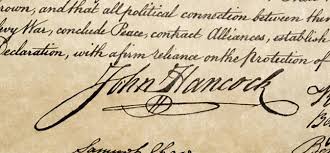 rown, and that all political connection between the
evy War, conclude Peace, contract Alliances, establish
Declaration, with a firm reliance on the Protection of
John Hancock